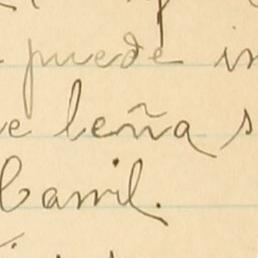 puede in
e leña s
Carril.